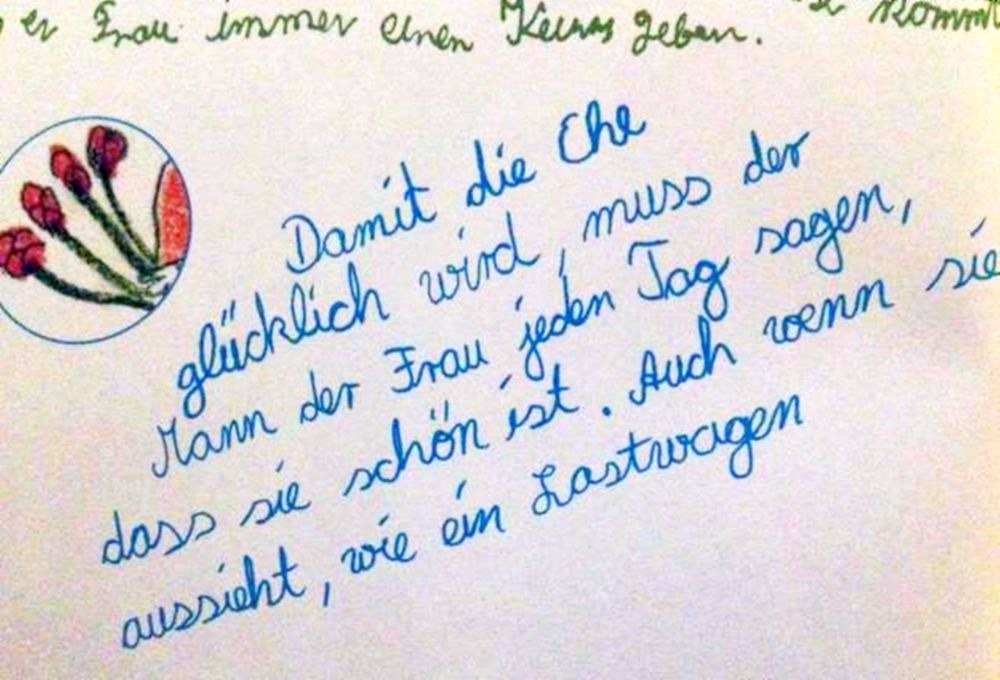 er Frau immer einen geben.
Damit die Ehe
glücklich wird, muss der
Mann der Frau jeden Tag sagen,
dass sie schön ist. Auch wenn sie
aussieht, wie ein Lastwagen